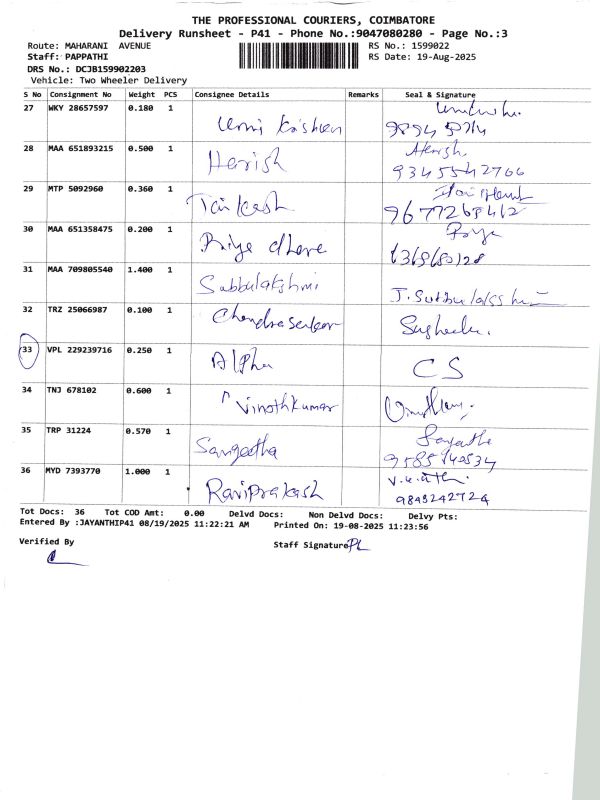 THE PROFESSIONAL COURIERS, COIMBATORE
Delivery Runsheet - P41 - Phone No.:9047080280 - Page No.:3
Route: MAHARANI AVENUE RS No.: 1599022
Staff: PAPPATHI RS Date: 19-Aug-2025
DRS No.: DCJB159902203
Vehicle: Two Wheeler Delivery
S No Consignment No Weight PCS Consignee Details Remarks Seal & Signature
27 WKY 28657597 0.180 1 Unni Krishnan
28 MAA 651893215 0.500 1 Harish Harish
9345542766
29 MTP 5092960 0.360 1
9677268412
30 MAA 651358475 0.200 1 Priya dhare Priya
31 MAA 709805540 1.400 1 Subbulakshmi J. Subbulakshmi
32 TRZ 25066987 0.100 1 Chandrasekar
33 VPL 229239716 0.250 1 Alpha CS
34 TNJ 678102 0.600 1 Vinothkumar
35 TRP 31224 0.570 1 Sangeetha
36 MYD 7393770 1.000 1 Raviprakash
9843242724
Tot Docs: 36 Tot COD Amt: 0.00 Delvd Docs: Non Delvd Docs: Delvy Pts:
Entered By :JAYANTHIP41 08/19/2025 11:22:21 AM Printed On: 19-08-2025 11:23:56
Verified By Staff Signature